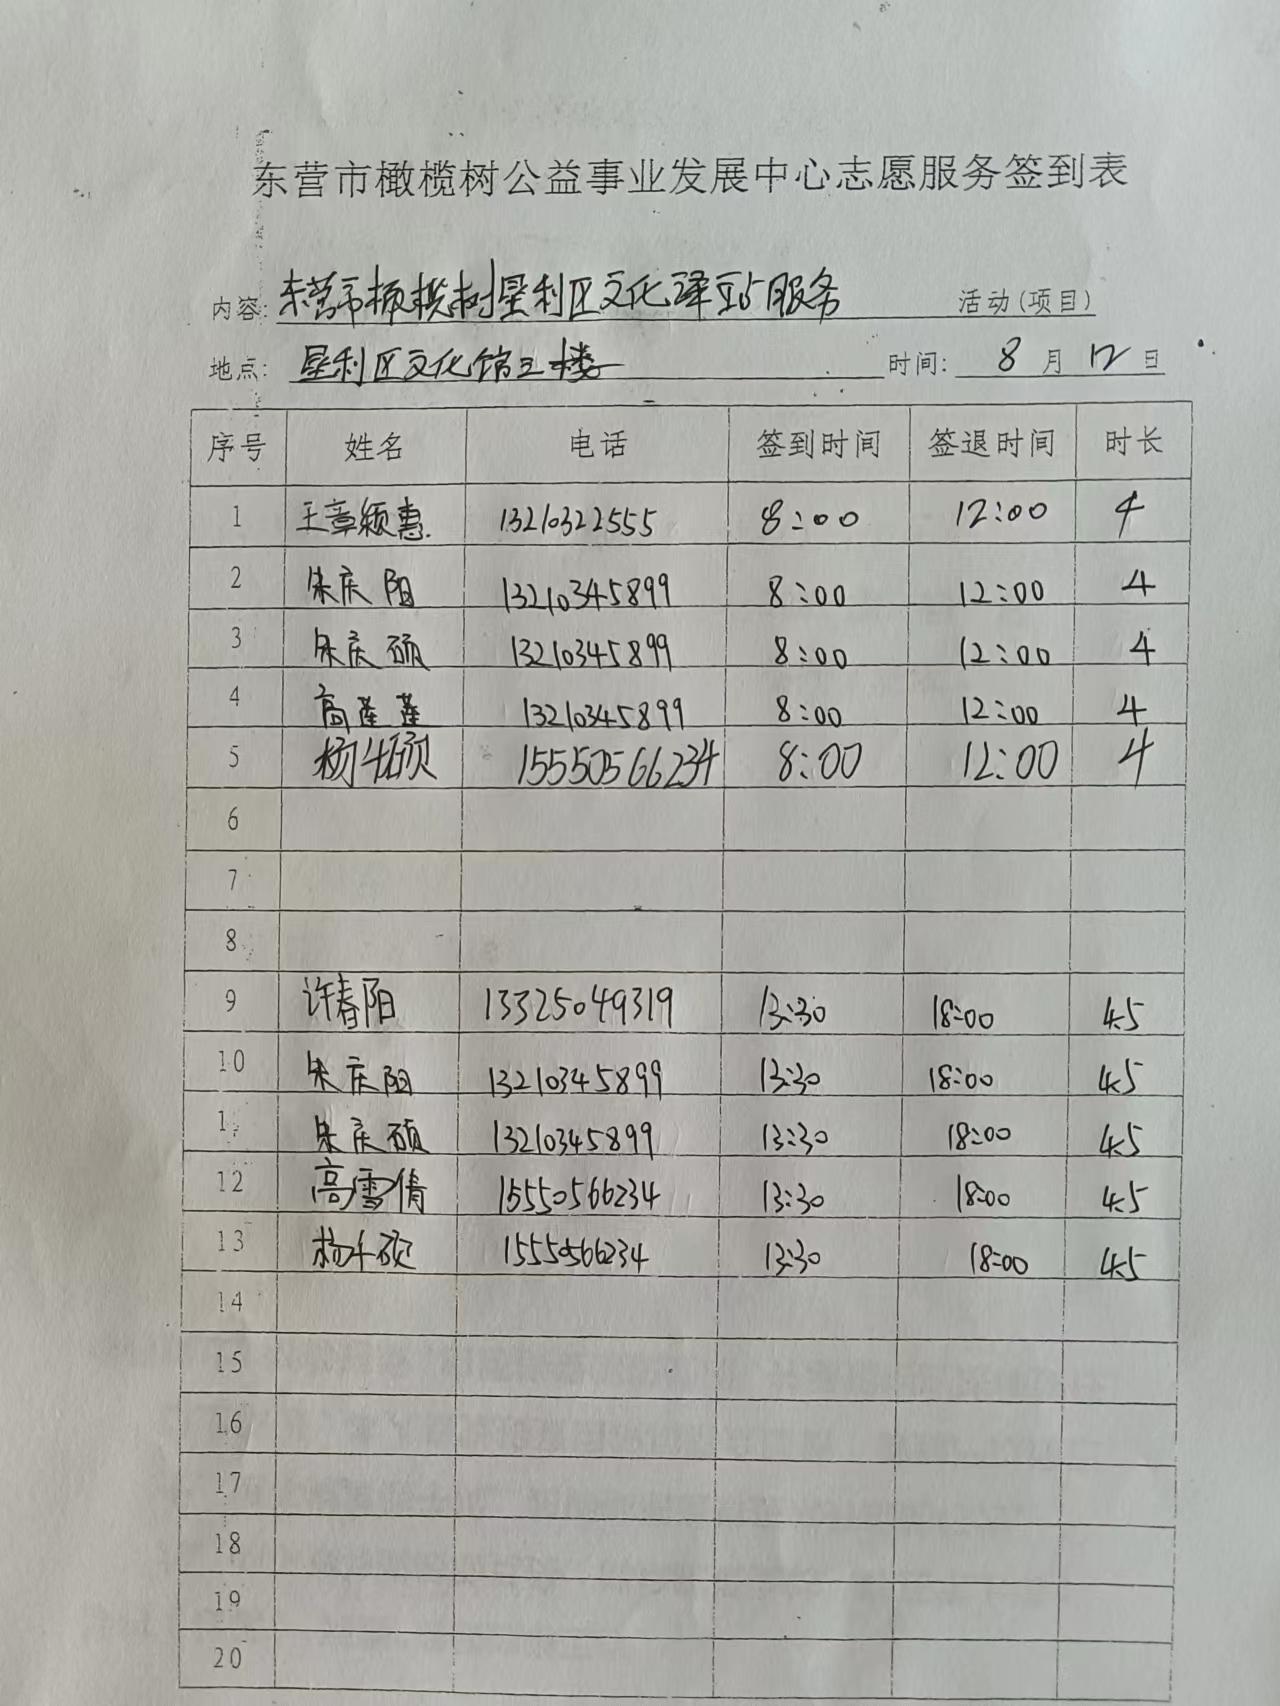 东营市橄榄树公益事业发展中心志愿服务签到表
内容: 东营市橄榄树垦利区文化驿站服务 活动(项目)
地点: 垦利区文化馆三楼 时间: 8 月 12 日
序号 姓名 电话 签到时间 签退时间 时长
1 王章颖惠 13210322555 8:00 12:00 4
2 朱庆阳 13210345899 8:00 12:00 4
3 朱庆硕 13210345899 8:00 12:00 4
4 高莲莲 13210345899 8:00 12:00 4
5 杨千硕 15550566234 8:00 12:00 4
6
7
8
9 许春阳 13325049319 13:30 18:00 4.5
10 朱庆阳 13210345899 13:30 18:00 4.5
1 朱庆硕 13210345899 13:30 18:00 4.5
12 高雪倩 15550566234 13:30 18:00 4.5
13 杨千硕 15550566234 13:30 18:00 4.5
14
15
16
17
18
19
20